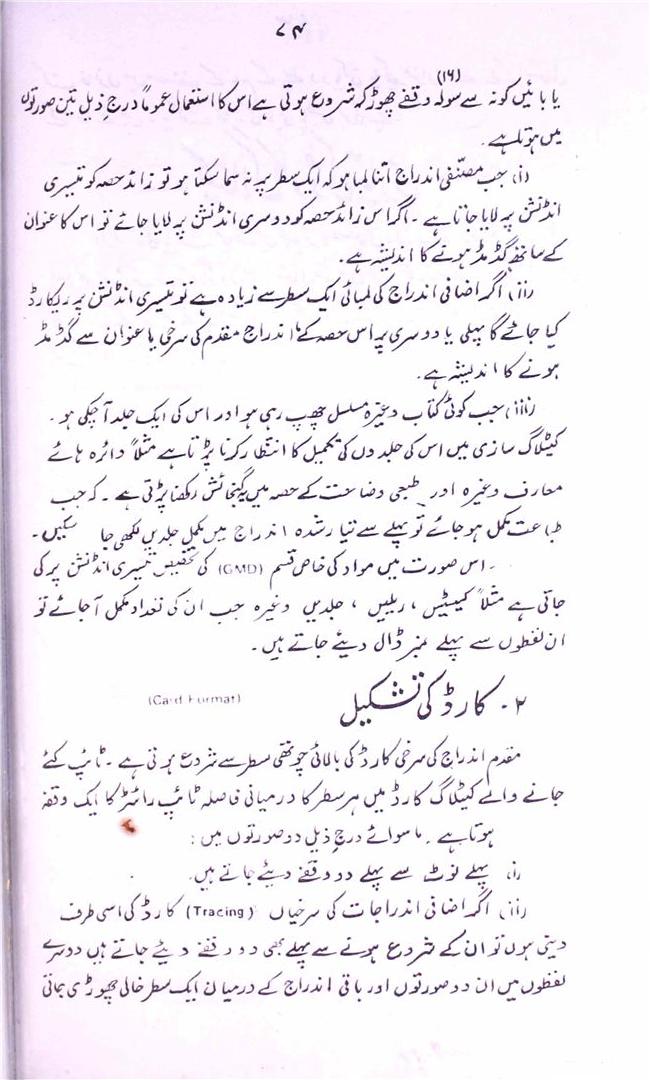 ۷۴
یا بائیں کونہ سے سولہ (۱۶) وقفے چھوڑ کر شروع ہوتی ہے اس کا استعمال عموماً درج ذیل تین صورتوں
میں ہوتا ہے۔
(i) جب مصنفی اندراج اتنا لمبا ہو کہ ایک سطر پر نہ سما سکتا ہو تو زائد حصہ کو تیسری
انڈنشن پر لایا جاتا ہے۔ اگر اس زائد حصہ کو دوسری انڈنشن پر لایا جائے تو اس کا عنوان
کے ساتھ گڈمڈ ہونے کا اندیشہ ہے۔
(ii) اگر اضافی اندراج کی لمبائی ایک سطر سے زیادہ ہے تو تیسری انڈنشن پر ریکارڈ
کیا جائے گا پہلی یا دوسری پر اس حصہ کے اندراج مقدم کی سرخی یا عنوان سے گڈمڈ
ہونے کا اندیشہ ہے۔
(iii) جب کوئی کتاب وغیرہ مسلسل چھپ رہی ہو اور اس کی ایک جلد آ چکی ہو۔
کیٹلاگ سازی میں اس کی جلدوں کی تکمیل کا انتظار کرنا پڑتا ہے مثلاً دائرہ ہائے
معارف وغیرہ اور طبعی وضاحت کے حصہ میں گنجائش رکھنا پڑتی ہے۔ کہ جب
طباعت مکمل ہو جائے تو پہلے سے تیار شدہ اندراج میں مکمل جلدیں لکھی جا سکیں۔
۔ اس صورت میں مواد کی خاص قسم (GMD) کی تخصیص تیسری انڈنشن پر کی
جاتی ہے مثلاً کیسیٹس، ریلیں، جلدیں وغیرہ جب ان کی تعداد مکمل آ جائے تو
ان لفظوں سے پہلے نمبر ڈال دیئے جاتے ہیں۔
۲۔ کارڈ کی تشکیل (Card Format)
مقدم اندراج کی سرخی کارڈ کی بالائی چوتھی سطر سے شروع ہوتی ہے۔ ٹائپ کئے
جانے والے کیٹلاگ کارڈ میں ہر سطر کا درمیانی فاصلہ ٹائپ رائٹر کا ایک وقفہ
ہوتا ہے۔ ماسوائے درج ذیل دو صورتوں میں:
(i) پہلے نوٹ سے پہلے دو وقفے دیئے جاتے ہیں۔
(ii) اگر اضافی اندراجات کی سرخیاں (Tracing) کارڈ کی اسی طرف
دینی ہوں تو ان کے شروع ہونے سے پہلے بھی دو وقفے دیئے جاتے ہیں دوسرے
لفظوں میں ان دو صورتوں اور باقی اندراج کے درمیان ایک سطر خالی چھوڑی جاتی